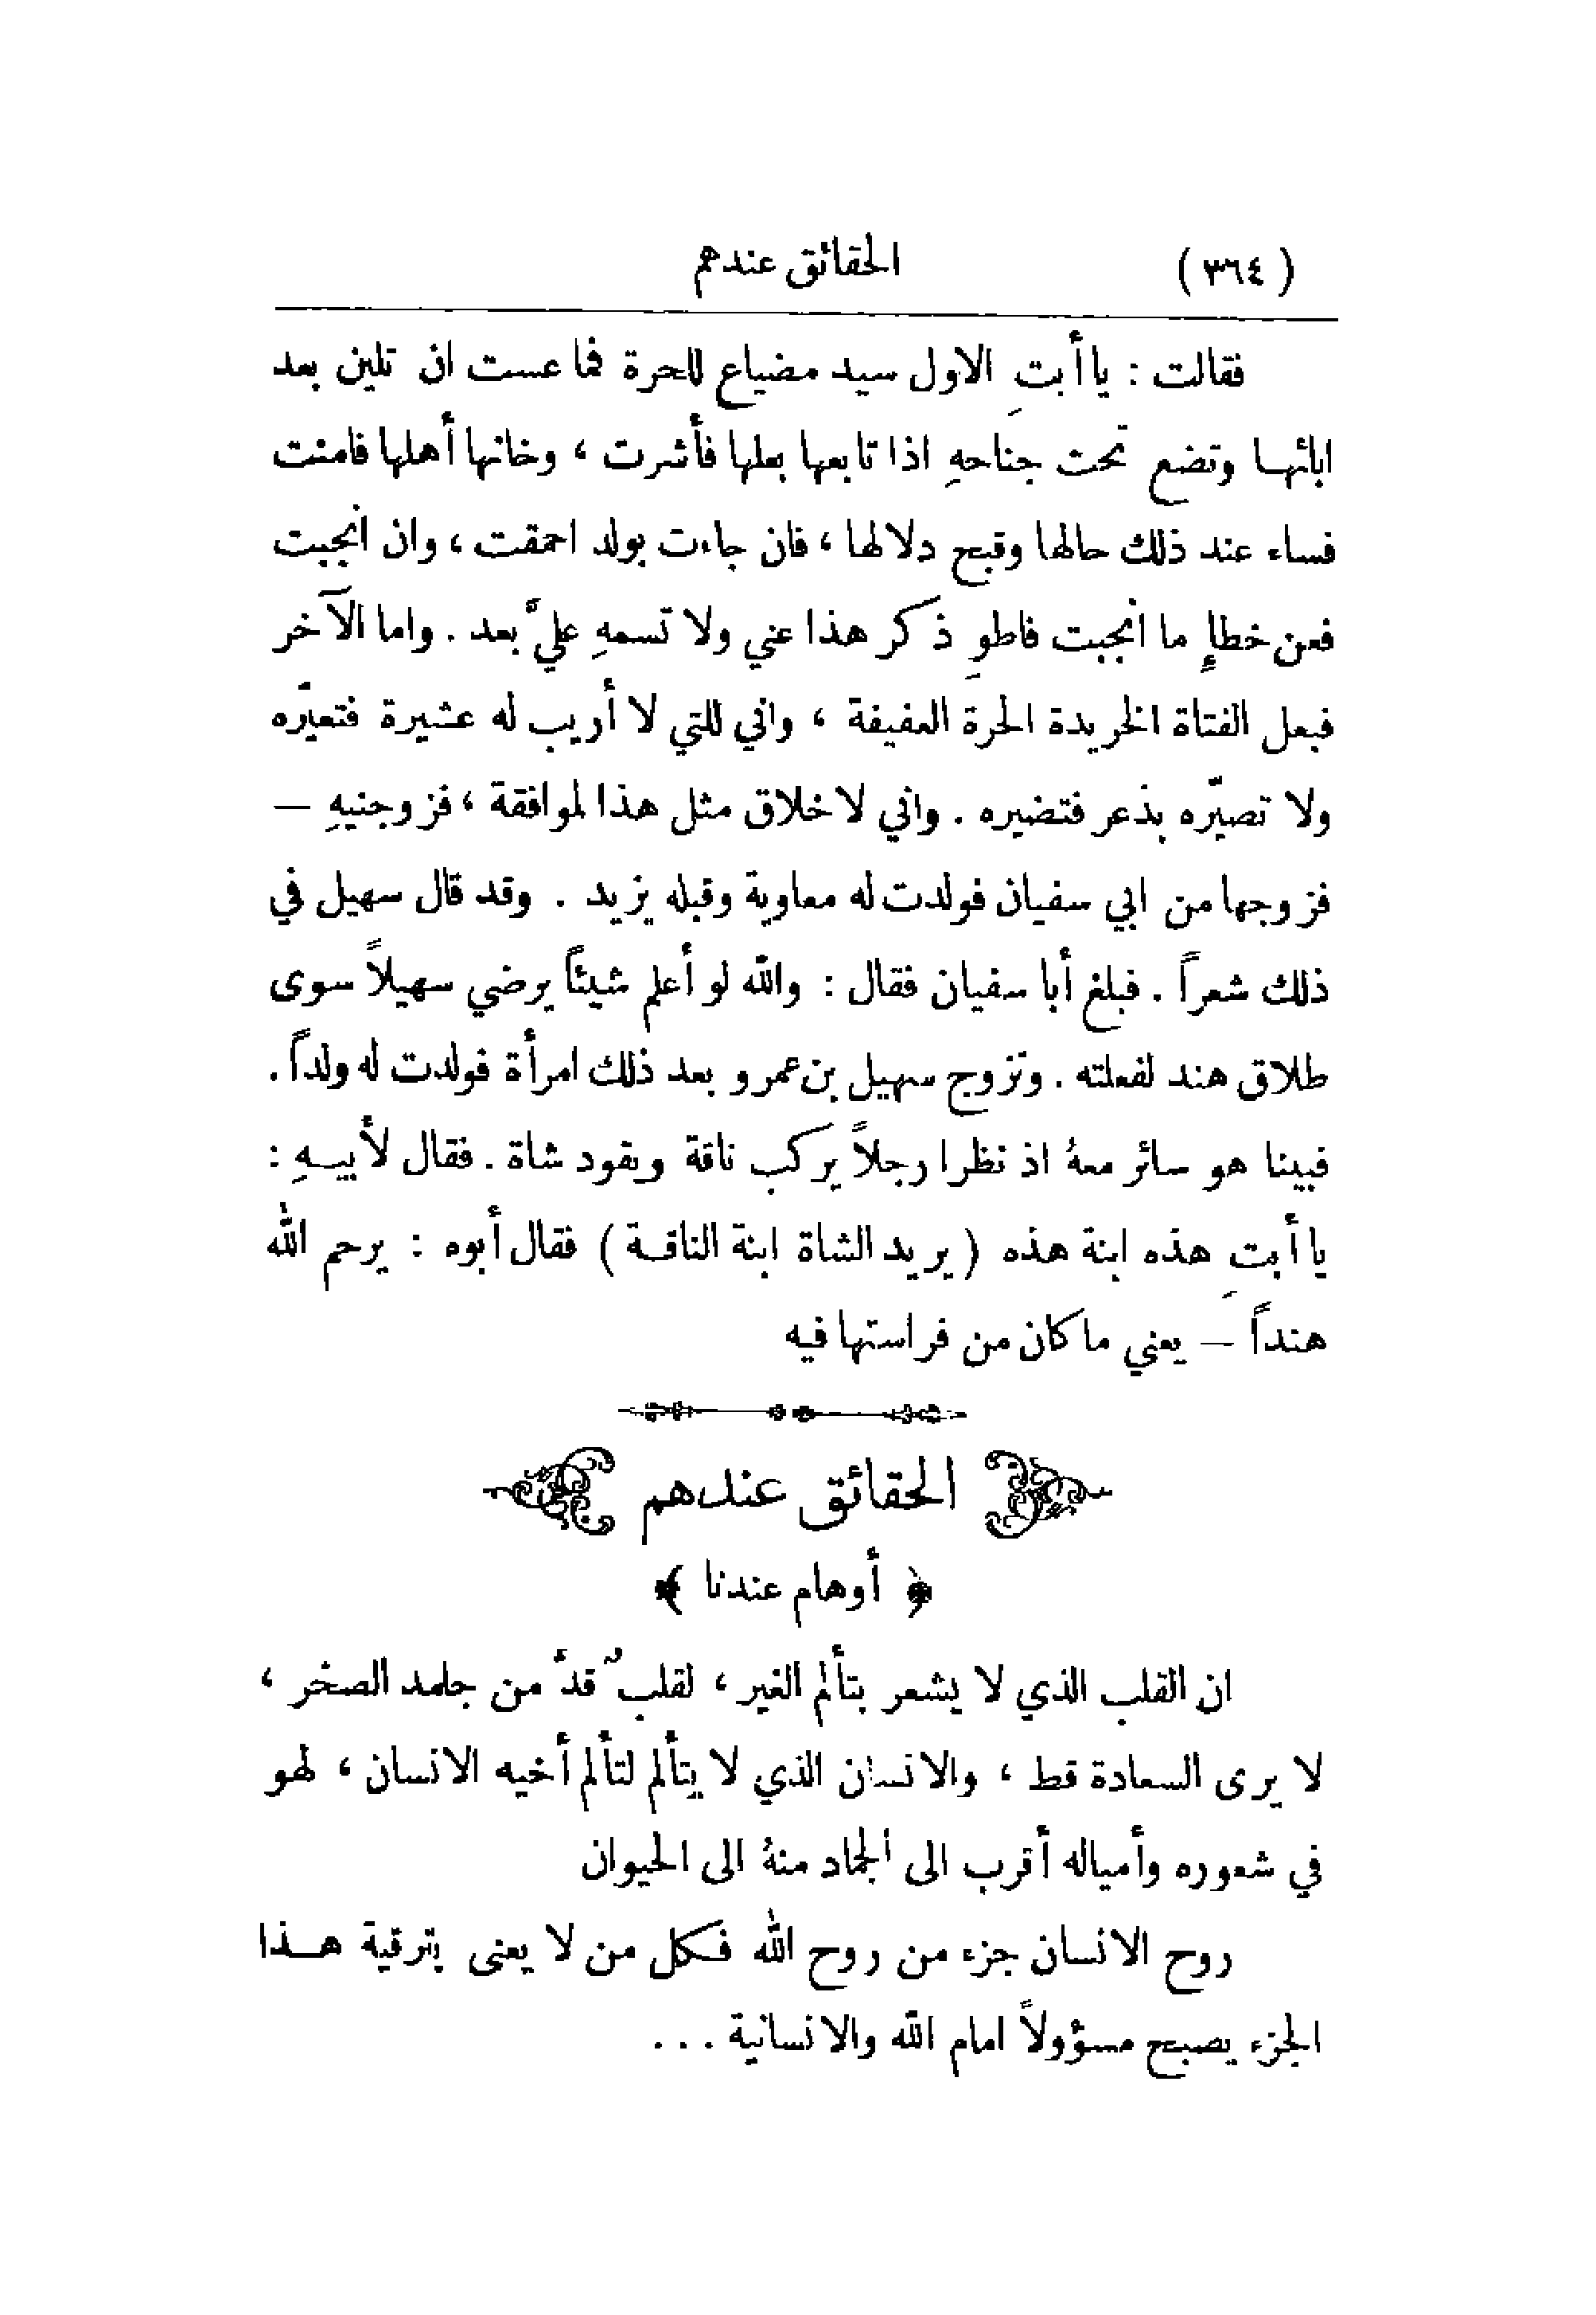 (٣٦٤) الحقائق عندهم
فقالت : يا أبتِ الاول سيد مضياع للحرة فما عست ان تلين بعد
ابائها وتضع تحت جناحهِ اذا تابعها بعلها فأشرت ، وخانها أهلها فامنت
فساء عند ذلك حالها وقبح دلالها ، فان جاءت بولد احمقت ، وان انجبت
فعن خطاٍ ما انجبت فاطوِ ذكر هذا عني ولا تسمهِ عليَّ بعد . واما الآخر
فبعل الفتاة الخريدة الحرة العفيفة ، واني للتي لا أريب له عشيرة فتعيّره
ولا تصيّره بذعر فتضيره . واني لاخلاق مثل هذا لموافقة ، فزوجنيهِ —
فزوجها من ابي سفيان فولدت له معاوية وقبله يزيد . وقد قال سهيل في
ذلك شعراً . فبلغ أبا سفيان فقال : والله لو أعلم شيئاً يرضي سهيلاً سوى
طلاق هند لفعلته . وتزوج سهيل بن عمرو بعد ذلك امرأة فولدت له ولداً .
فبينا هو سائر معهُ اذ نظرا رجلاً يركب ناقة ويقود شاة . فقال لأبيهِ :
يا أبتِ هذه ابنة هذه ( يريد الشاة ابنة الناقة ) فقال أبوه : يرحم الله
هنداً — يعني ما كان من فراستها فيه
الحقائق عندهم
﴿ أوهام عندنا ﴾
ان القلب الذي لا يشعر بتألم الغير ، لقلبٌ قدَّ من جلمد الصخر ،
لا يرى السعادة قط ، والانسان الذي لا يتألم لتألم أخيه الانسان ، لهو
في شعوره وأمياله أقرب الى الجماد منهُ الى الحيوان
روح الانسان جزء من روح الله فكل من لا يعنى بترقية هذا
الجزء يصبح مسؤولاً امام الله والانسانية ...